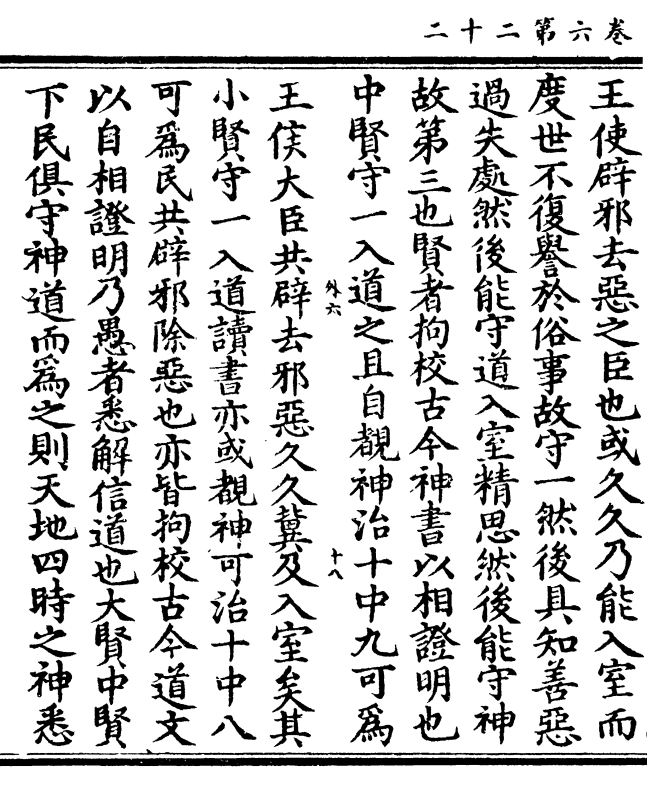 卷六第二十二
王使辟邪去惡之臣也或久久乃能入室而
度世不復譽於俗事故守一然後具知善惡
過失處然後能守道入室精思然後能守神
故第三也賢者拘校古今神書以相證明也
中賢守一入道之且自覩神治十中九可爲
外六
十八
王侯大臣共辟去邪惡久久冀及入室矣其
小賢守一入道讀書亦或覩神可治十中八
可爲民共辟邪除惡也亦皆拘校古今道文
以自相證明乃愚者悉解信道也大賢中賢
下民俱守神道而爲之則天地四時之神悉